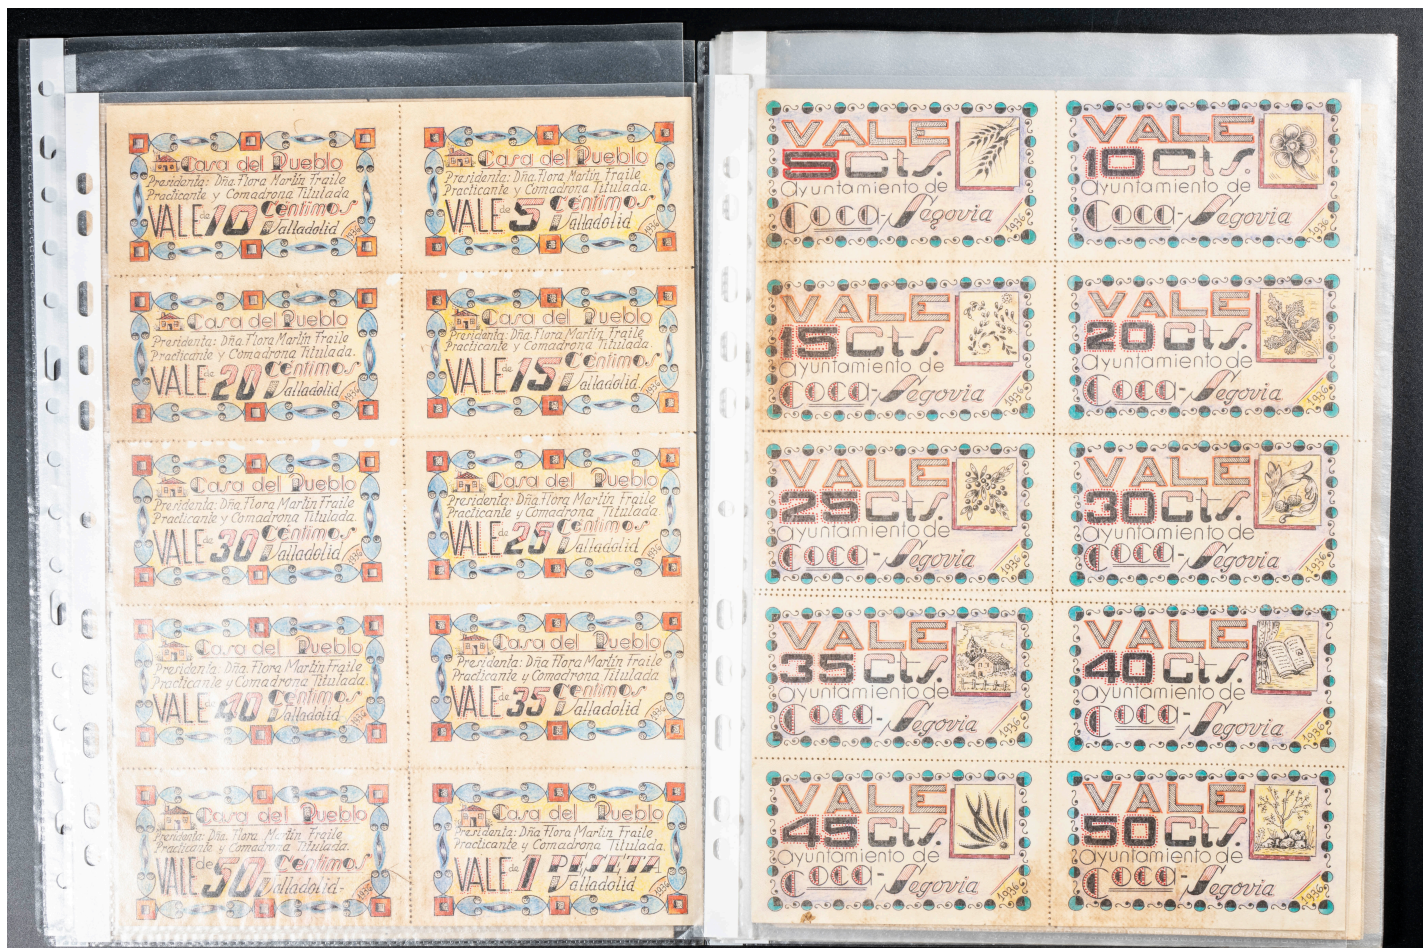 Casa del Pueblo
Presidenta: Dña. Flora Martín Fraile
Practicante y Comadrona Titulada.
VALE de 10 Céntimos
Valladolid 1936
Casa del Pueblo
Presidenta: Dña. Flora Martín Fraile
Practicante y Comadrona Titulada.
VALE de 5 Céntimos
Valladolid 1936
Casa del Pueblo
Presidenta: Dña. Flora Martín Fraile
Practicante y Comadrona Titulada.
VALE de 20 Céntimos
Valladolid 1936
Casa del Pueblo
Presidenta: Dña. Flora Martín Fraile
Practicante y Comadrona Titulada.
VALE de 15 Céntimos
Valladolid 1936
Casa del Pueblo
Presidenta: Dña. Flora Martín Fraile
Practicante y Comadrona Titulada.
VALE de 30 Céntimos
Valladolid 1936
Casa del Pueblo
Presidenta: Dña. Flora Martín Fraile
Practicante y Comadrona Titulada.
VALE de 25 Céntimos
Valladolid 1936
Casa del Pueblo
Presidenta: Dña. Flora Martín Fraile
Practicante y Comadrona Titulada.
VALE de 40 Céntimos
Valladolid 1936
Casa del Pueblo
Presidenta: Dña Flora Martín Fraile
Practicante y Comadrona Titulada
VALE de 35 Céntimos
Valladolid 1936
Casa del Pueblo
Presidenta: Dña. Flora Martín Fraile
Practicante y Comadrona Titulada.
VALE de 50 Céntimos
Valladolid- 1936
Casa del Pueblo
Presidenta: Dña Flora Martín Fraile
Practicante y Comadrona Titulada.
VALE de 1 PESETA
Valladolid 1936
VALE
5 Cts.
Ayuntamiento de
Coca-Segovia
1936
VALE
10 Cts.
Ayuntamiento de
Coca-Segovia
1936
VALE
15 Cts.
Ayuntamiento de
Coca-Segovia
1936
VALE
20 Cts.
Ayuntamiento de
Coca-Segovia
1936
VALE
25 Cts.
Ayuntamiento de
Coca-Segovia
1936
VALE
30 Cts.
Ayuntamiento de
Coca-Segovia
1936
VALE
35 Cts.
Ayuntamiento de
Coca-Segovia
1936
VALE
40 Cts.
Ayuntamiento de
Coca-Segovia
1936
VALE
45 Cts.
Ayuntamiento de
Coca-Segovia
1936
VALE
50 Cts.
Ayuntamiento de
Coca-Segovia
1936